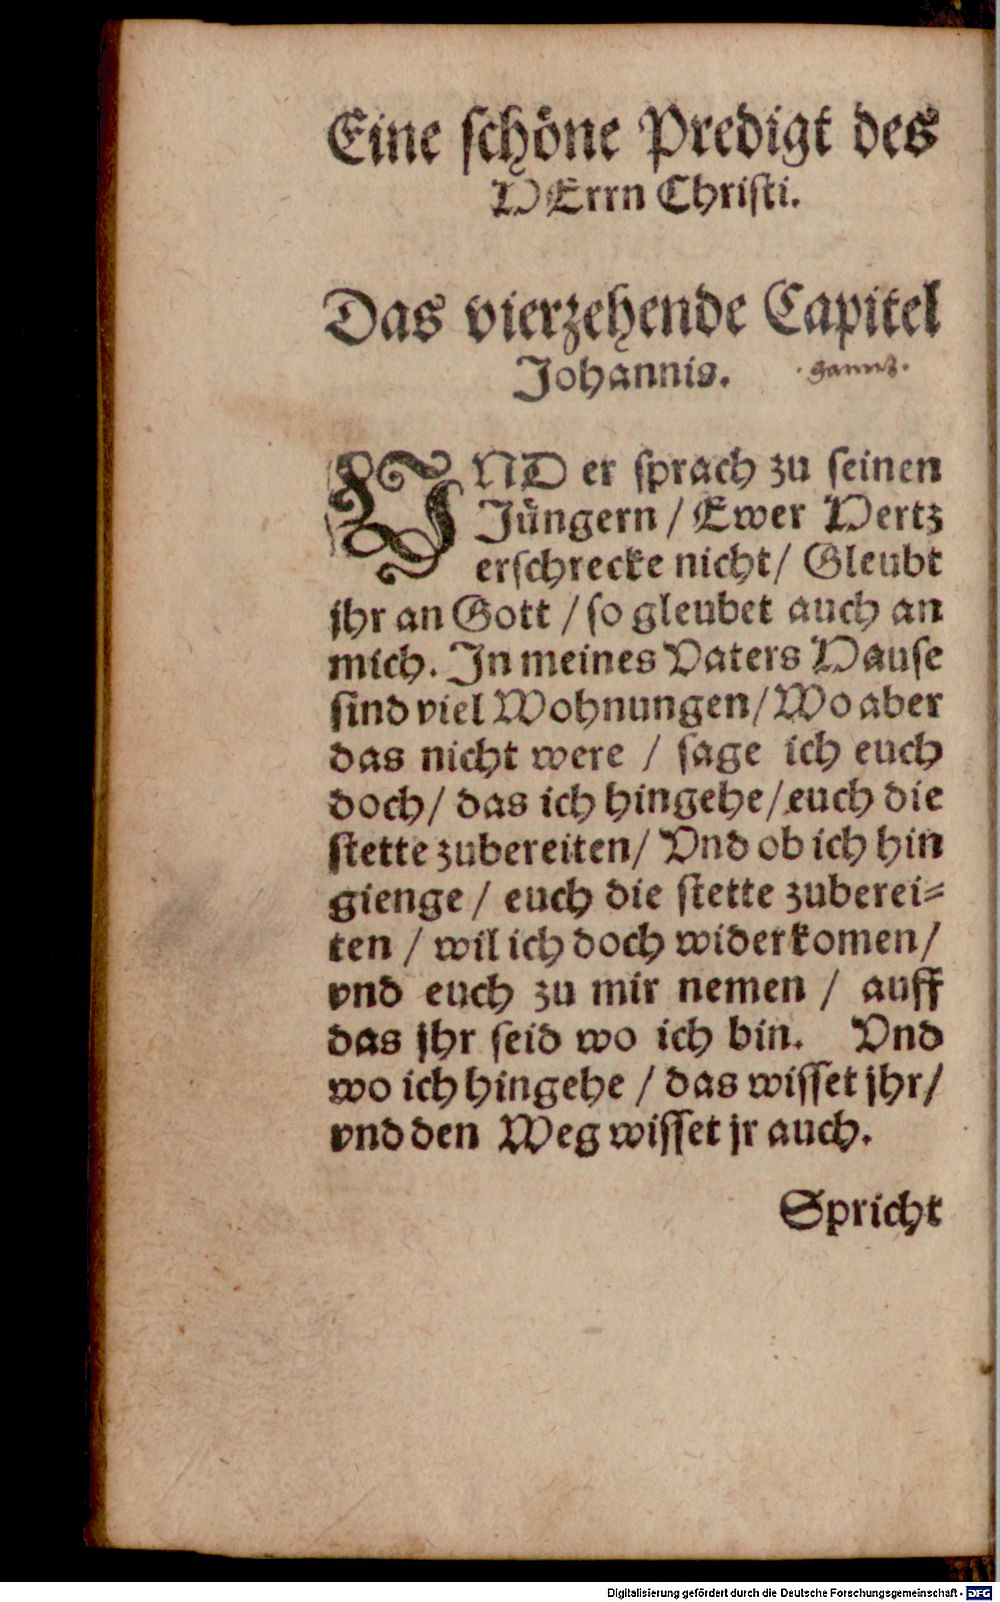 Eine schöne Predigt des
HErrn Christi.
Das vierzehende Capitel
Johannis. · ganntz ·
VND er sprach zu seinen
Jüngern / Ewer Hertz
erschrecke nicht / Gleubt
jhr an Gott / so gleubet auch an
mich. In meines Vaters Hause
sind viel Wohnungen / Wo aber
das nicht were / sage ich euch
doch / das ich hingehe / euch die
stette zubereiten / Vnd ob ich hin
gienge / euch die stette zuberei⸗
ten / wil ich doch widerkomen /
vnd euch zu mir nemen / auff
das jhr seid wo ich bin. Vnd
wo ich hingehe / das wisset jhr /
vnd den Weg wisset jr auch.
Spricht
Digitalisierung gefördert durch die Deutsche Forschungsgemeinschaft - DFG